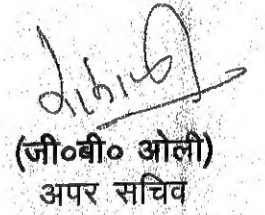 (जी०बी० ओली)
अपर सचिव